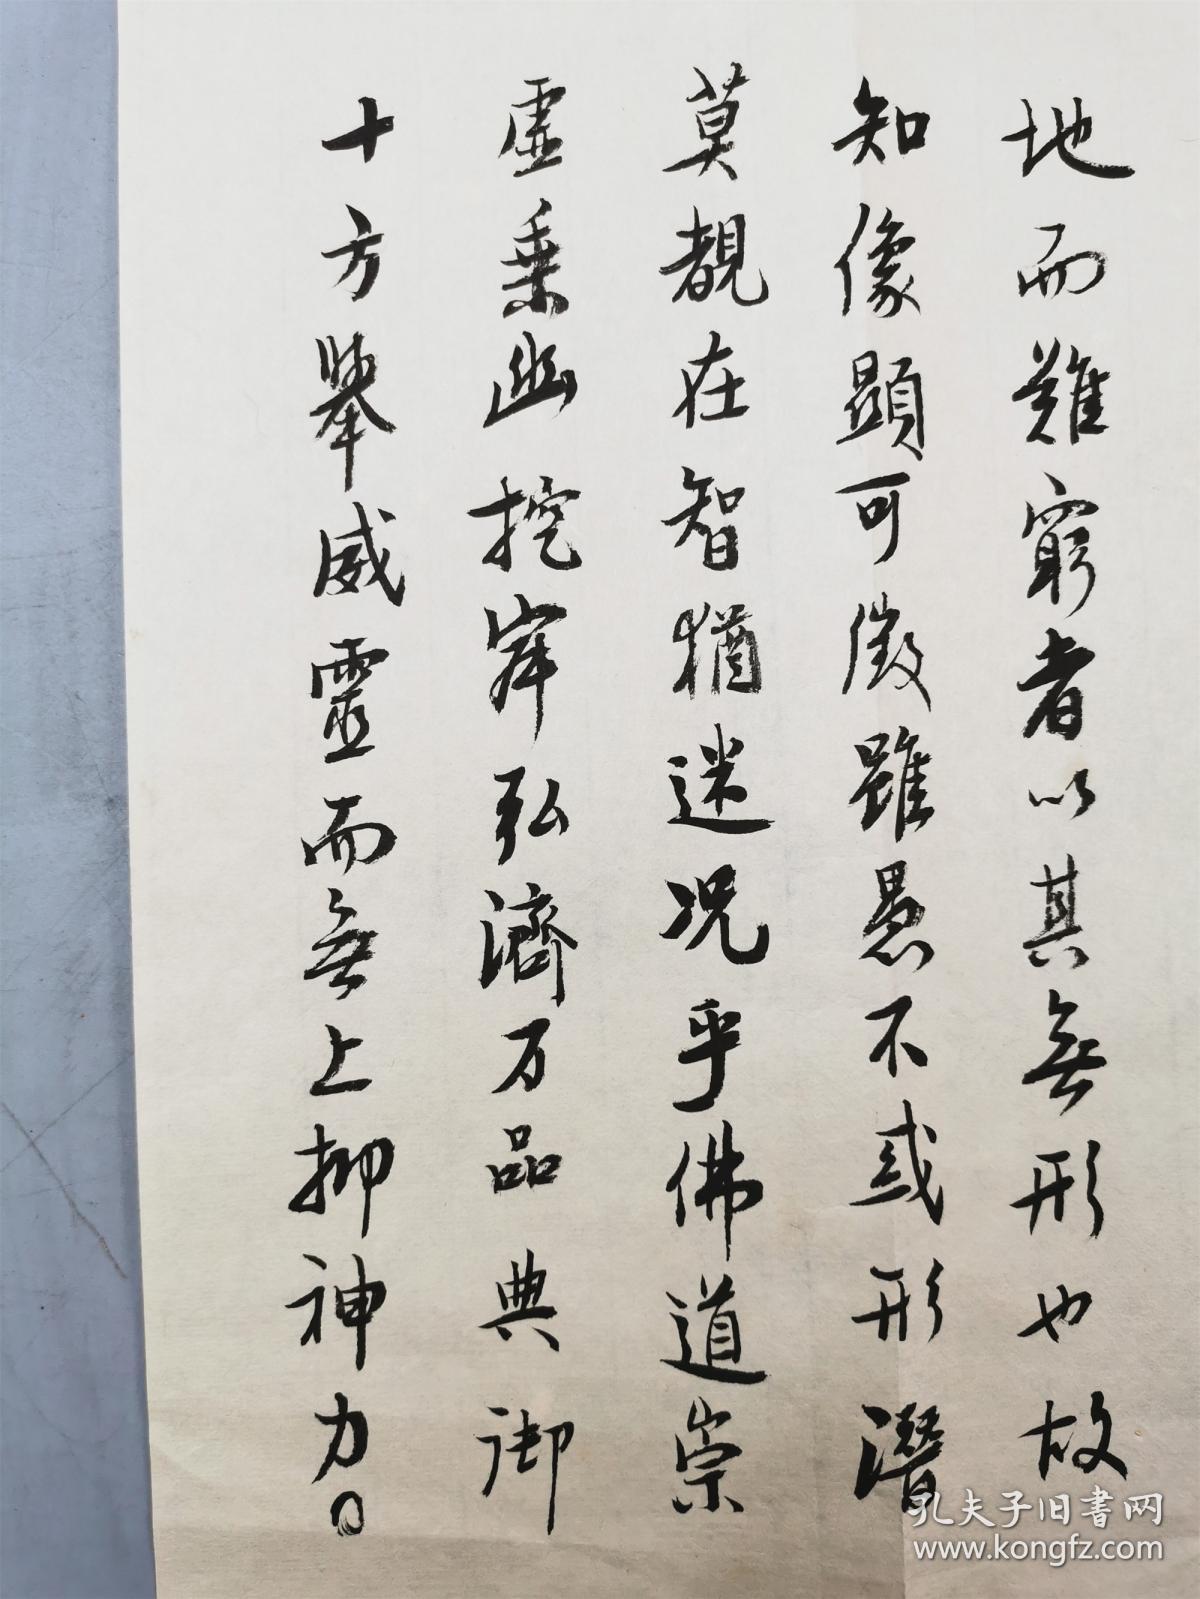 地而難窮者以其無形也故
知像顯可徵雖愚不惑形潛
莫覩在智猶迷況乎佛道崇
虛乘幽控寂弘濟万品典御
十方舉威靈而無上抑神力
孔夫子旧书网
www.kongfz.com